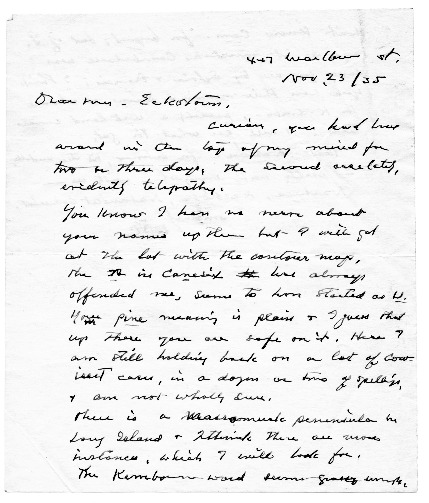 St.
Nov 23/35
Dear Mrs. Eckstorm,
Curious, you had been
around in the top of my mind for
two or three days, the second ,
evidently telepathy.
You know I have no nerve about
your names up there but I will get
at the lot with the contour map,
the in has always
offended me, seems to have started as
Your pine meaning is plain & I guess that
up there you are safe on it. Here I
am still holding back on a lot of Cow-
issett cases, in a dozen or two of spellings,
& am not wholly sure.
There is a peninsula in
Long Island & I think there are more
instances, which I will look for.
The word seems